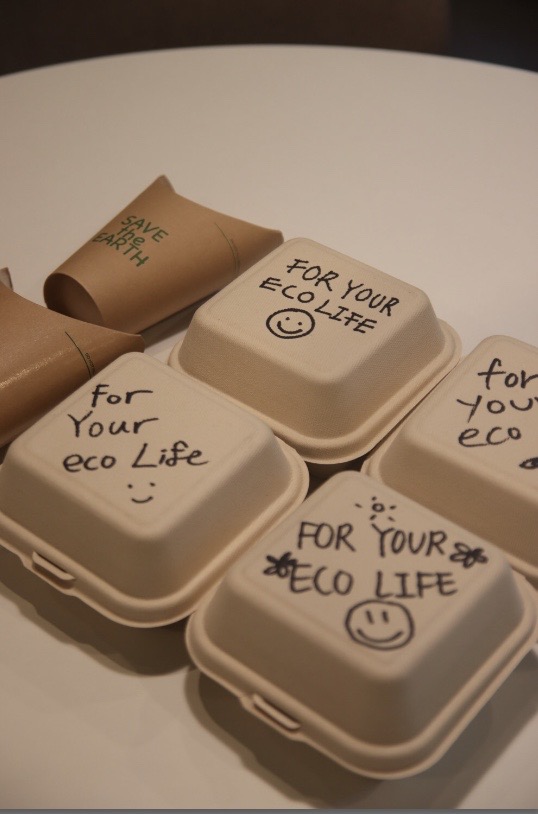 SAVE
the
EARTH
FOR YOUR
ECO LIFE
for
your
eco
For
Your
eco Life
FOR YOUR
ECO LIFE